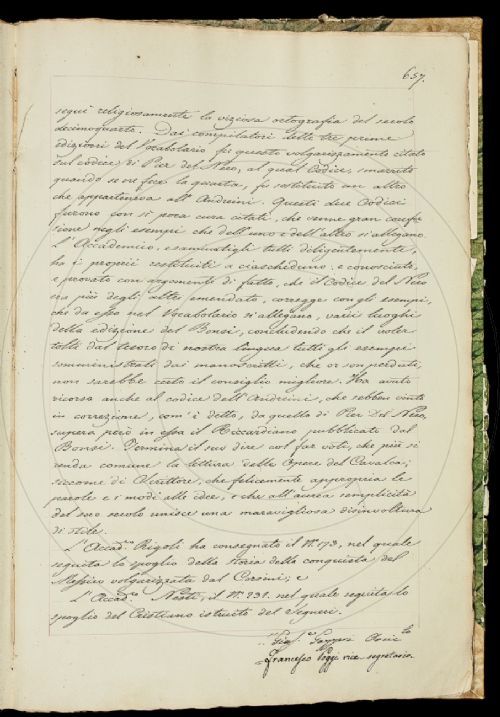 657.
seguì religiosamente la viziosa ortografia del secolo
decimoquarto. Dai compilatori delle tre prime
edizioni del Vocabolario fu questo volgarizzamento citato
sul codice di Pier del Nero, al qual Codice, smarrito
quando se ne fece la quarta, fu sostituito un altro
che apparteneva all'Andreini. Questi due Codici
furono con sì poca cura citati, che venne gran confu-
sione negli esempi che dell'uno e dell'altro si allegano.
L'Accademico, esaminatigli tutti diligentemente,
ha i proprii restituiti a ciascheduno, e conosciuto,
e provato con argomenti di fatto, che il Codice del Nero
era più degli altri emendato, corregge con gli esempi,
che da esso nel Vocabolario si allegano, varii luoghi
della edizione del Bonsi, concludendo che il voler
tolti dal tesoro di nostra lingua tutti gli esempi
somministrati dai manoscritti, che or son perduti,
non sarebbe certo il consiglio migliore. Ha avuto
ricorso anche al codice dell'Andreini, che sebben vinto
in correzione, com'è detto, da quello di Pier Del Nero,
supera però in essa il Riccardiano pubblicato dal
Bonsi. Termina il suo dire col far voti, che più si
renda comune la lettura delle Opere del Cavalca;
siccome di Scrittore, che felicemente appropria le
parole e i modi alle idee, e che all'aurea semplicità
del suo secolo unisce una maravigliosa disinvoltura
di stile.
L'Accad.co Rigoli ha consegnato il N.o 173, nel quale
seguita lo spoglio della storia della conquista del
Messico volgarizzata dal Corsini; e
L'Accad.co Nesti, il N.o 231. nel quale seguita lo
spoglio del Cristiano istruito del Segneri.
Francesco Poggi vice-segretario.